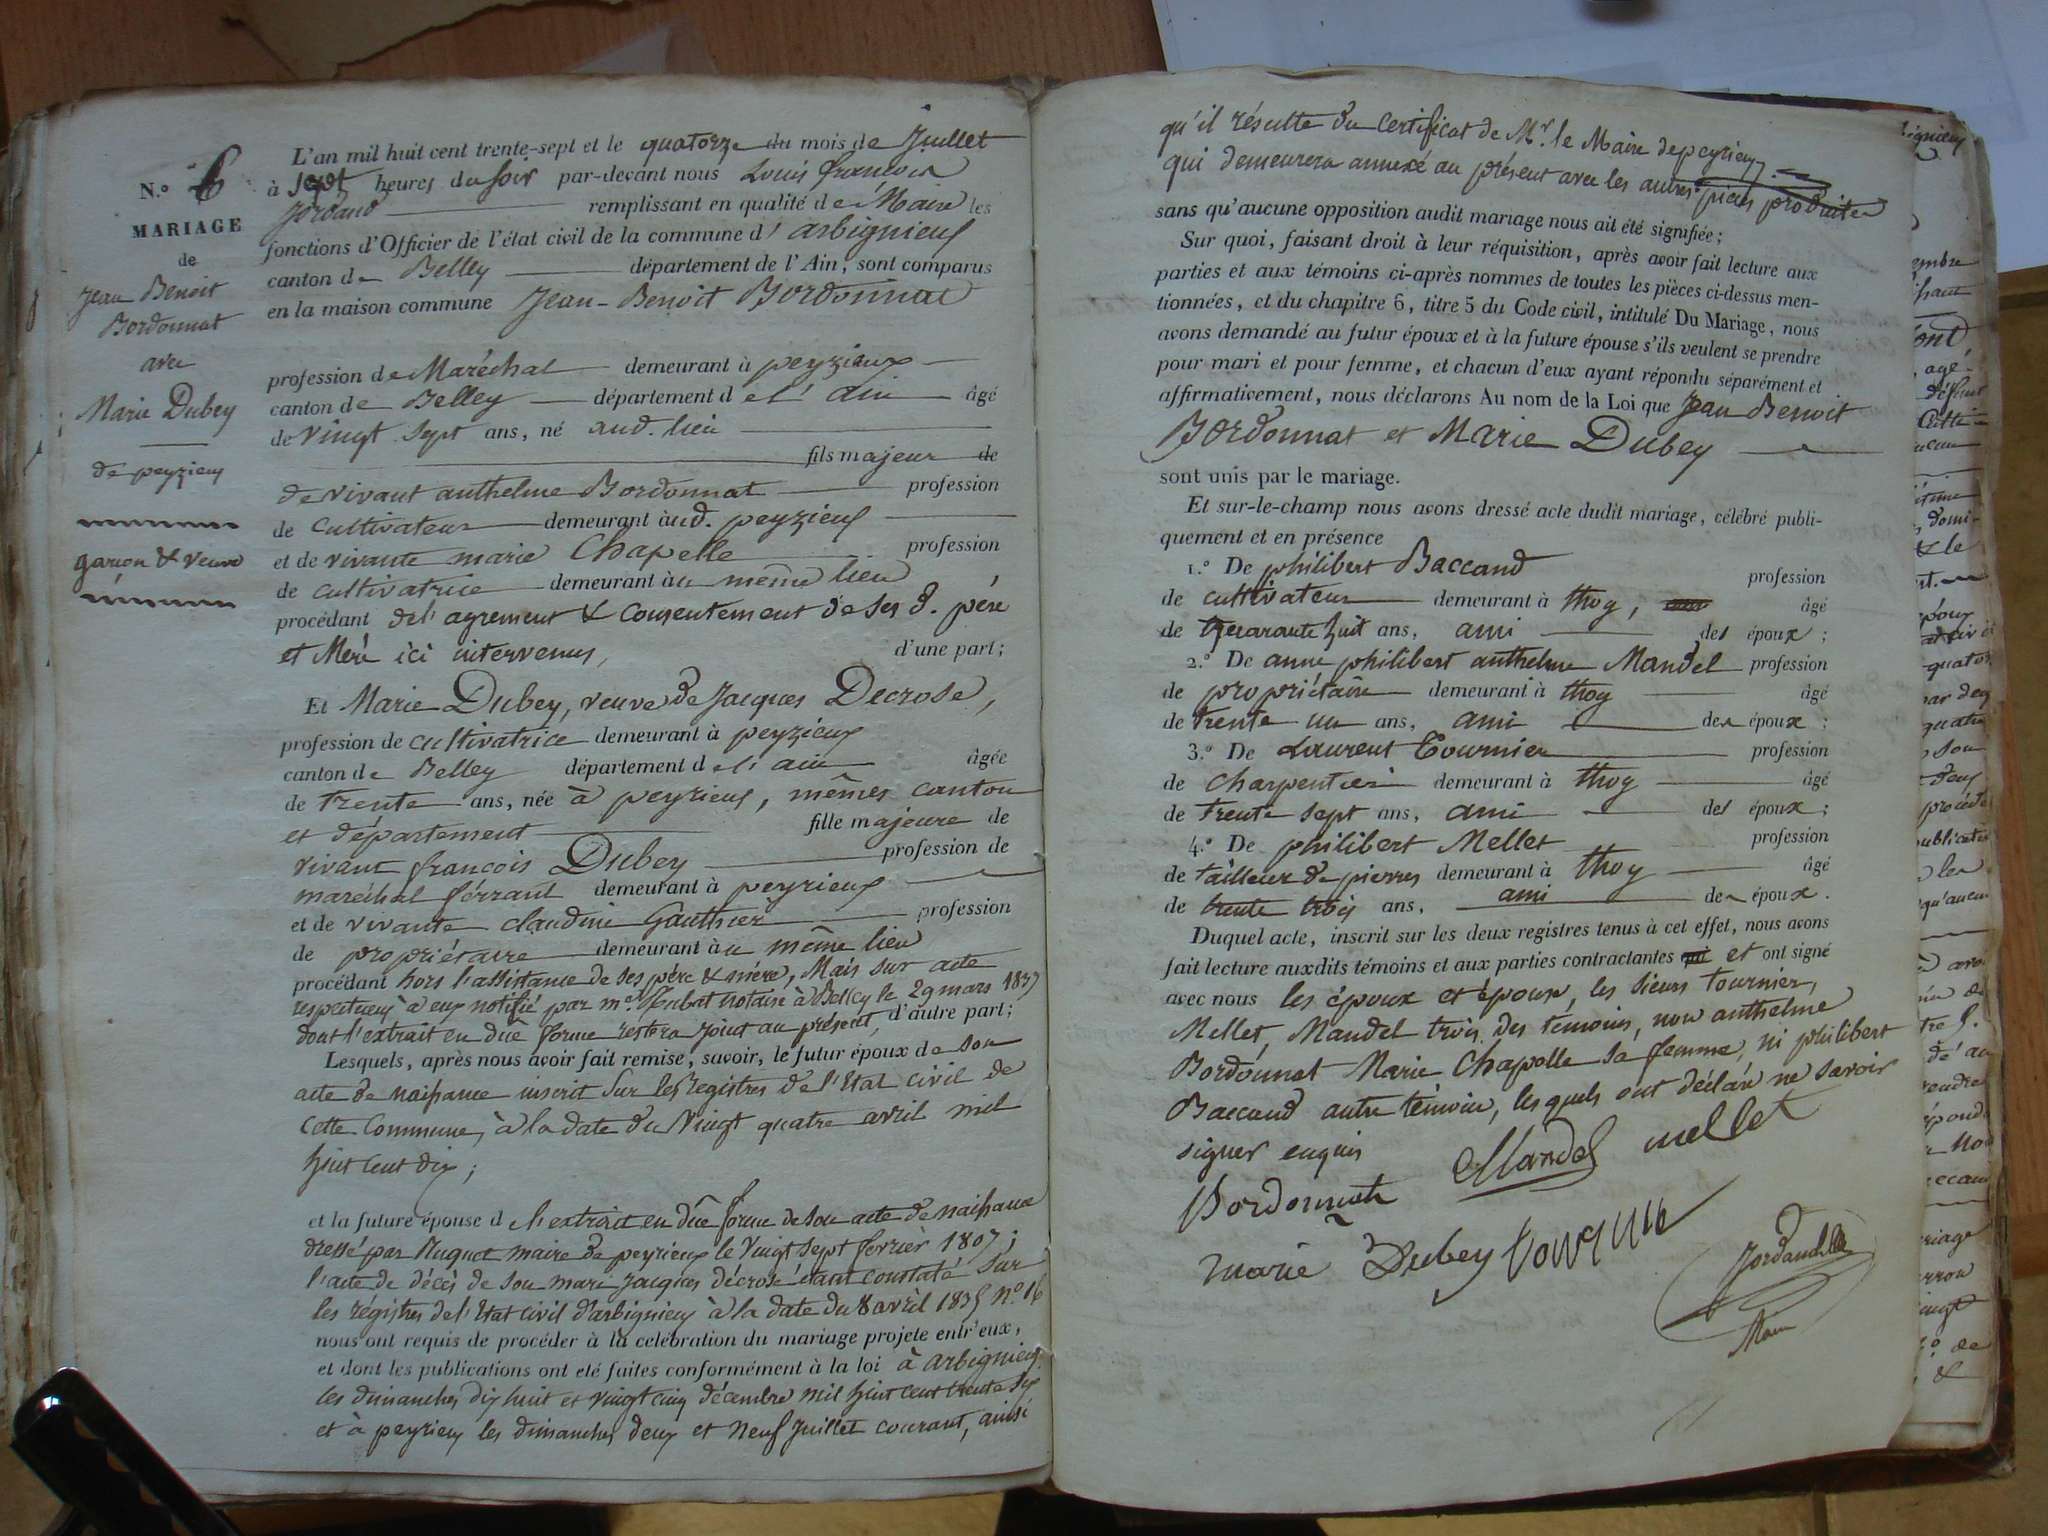 N.º 6
MARIAGE
de
Jean Benoit
Bordonnat
avec
Marie Dubey
de peyrieux
garcon & veuve
L'an mil huit cent trente-sept et le quatorze du mois de Juillet
à sept heures du soir par-devant nous Louis françois
Jordand remplissant en qualité de Maire les
fonctions d'Officier de l'état civil de la commune d' arbignieux
canton de Belley département de l'Ain, sont comparus
en la maison commune Jean-Benoit Bordonnat
profession de Maréchal demeurant à peyzieux
canton de Belley département de l'Ain âgé
de vingt sept ans, né aud. lieu
fils majeur de
de vivant anthelme Bordonnat profession
de cultivateur demeurant àud. peyzieux
et de vivante marie Chapelle profession
de cultivatrice demeurant àu même lieu
procédant de l'agrement & consentement de ses d. père
et Mère ici intervenus, d'une part;
Et Marie Dubey, veuve de Jacques Decrose,
profession de cultivatrice demeurant à peyzieux
canton de Belley département de l'ain âgée
de trente ans, née à peyrieux, mêmes canton
et département fille majeure de
vivant françois Dubey profession de
maréchal férrant demeurant à peyrieux
et de vivante claudine Gauthier profession
de propriétaire demeurant àu même lieu
procédant hors l'assistance de ses père & mère, Mais sur acte
respectueux à eux notifié par me. hubat notaire à Belley le 29 mars 1837
dont l'extrait en dûe forme restera joint au présent, d'autre part;
Lesquels, après nous avoir fait remise, savoir, le futur époux de son
acte de naissance inscrit sur les registres de l'Etat civil de
cette Commune, à la date du Vingt quatre avril mil
huit cent dix;
et la future épouse de l'extrait en dûe forme de son acte de naissance
dressé par Nuquet maire de peyrieux le vingt sept fevrier 1807;
l'acte de décès de son mari jacques décrose étant constaté sur
les régistres de l'Etat civil d'arbignieux à la date du 8 avril 1835 Nº 16
nous ont requis de procéder à la celébration du mariage projeté entr'eux,
et dont les publications ont été faites conformément à la loi à arbignieux
les dimanches dix huit et vingt cinq décembre mil huit cent trente six
et à peyrieux les dimanches deux et Neuf Juillet courant, ainsi
qu'il résulte du certificat de Mr. le Maire de peyrieux
qui demeurera annexé au présent avec les autres pièces produites
sans qu'aucune opposition audit mariage nous ait été signifiée;
Sur quoi, faisant droit à leur réquisition, après avoir fait lecture aux
parties et aux témoins ci-après nommes de toutes les pièces ci-dessus men-
tionnées, et du chapitre 6, titre 5 du Code civil, intitulé Du Mariage, nous
avons demandé au futur époux et à la future épouse s'ils veulent se prendre
pour mari et pour femme, et chacun d'eux ayant répondu séparément et
affirmativement, nous déclarons Au nom de la Loi que Jean Benoit
Bordonnat et Marie Dubey
sont unis par le mariage.
Et sur-le-champ nous avons dressé acte dudit mariage, célébré publi-
quement et en présence
1.º De philibert Baccand profession
de cultivateur demeurant à thoy, âgé
de quarante huit ans, ami des époux;
2.º De anne philibert anthelme Mandel profession
de propriétaire demeurant à thoy âgé
de trente un ans, ami des époux;
3.º De Laurent Tournier profession
de charpentier demeurant à thoy âgé
de trente sept ans, ami des époux;
4.º De philibert Mellet profession
de tailleur de pierres demeurant à thoy âgé
de trente trois ans, ami des époux.
Duquel acte, inscrit sur les deux registres tenus à cet effet, nous avons
fait lecture auxdits témoins et aux parties contractantes et ont signé
avec nous les époux et épouse, les sieurs Tournier,
Mellet, Mandel trois des témoins, non anthelme
Bordonnat Marie Chapelle sa femme, ni philibert
Baccand autre témoin, lesquels ont déclaré ne savoir
signer enquis
Mandel mellet
Bordonnat
marie Dubey tournier
Jordand
Maire